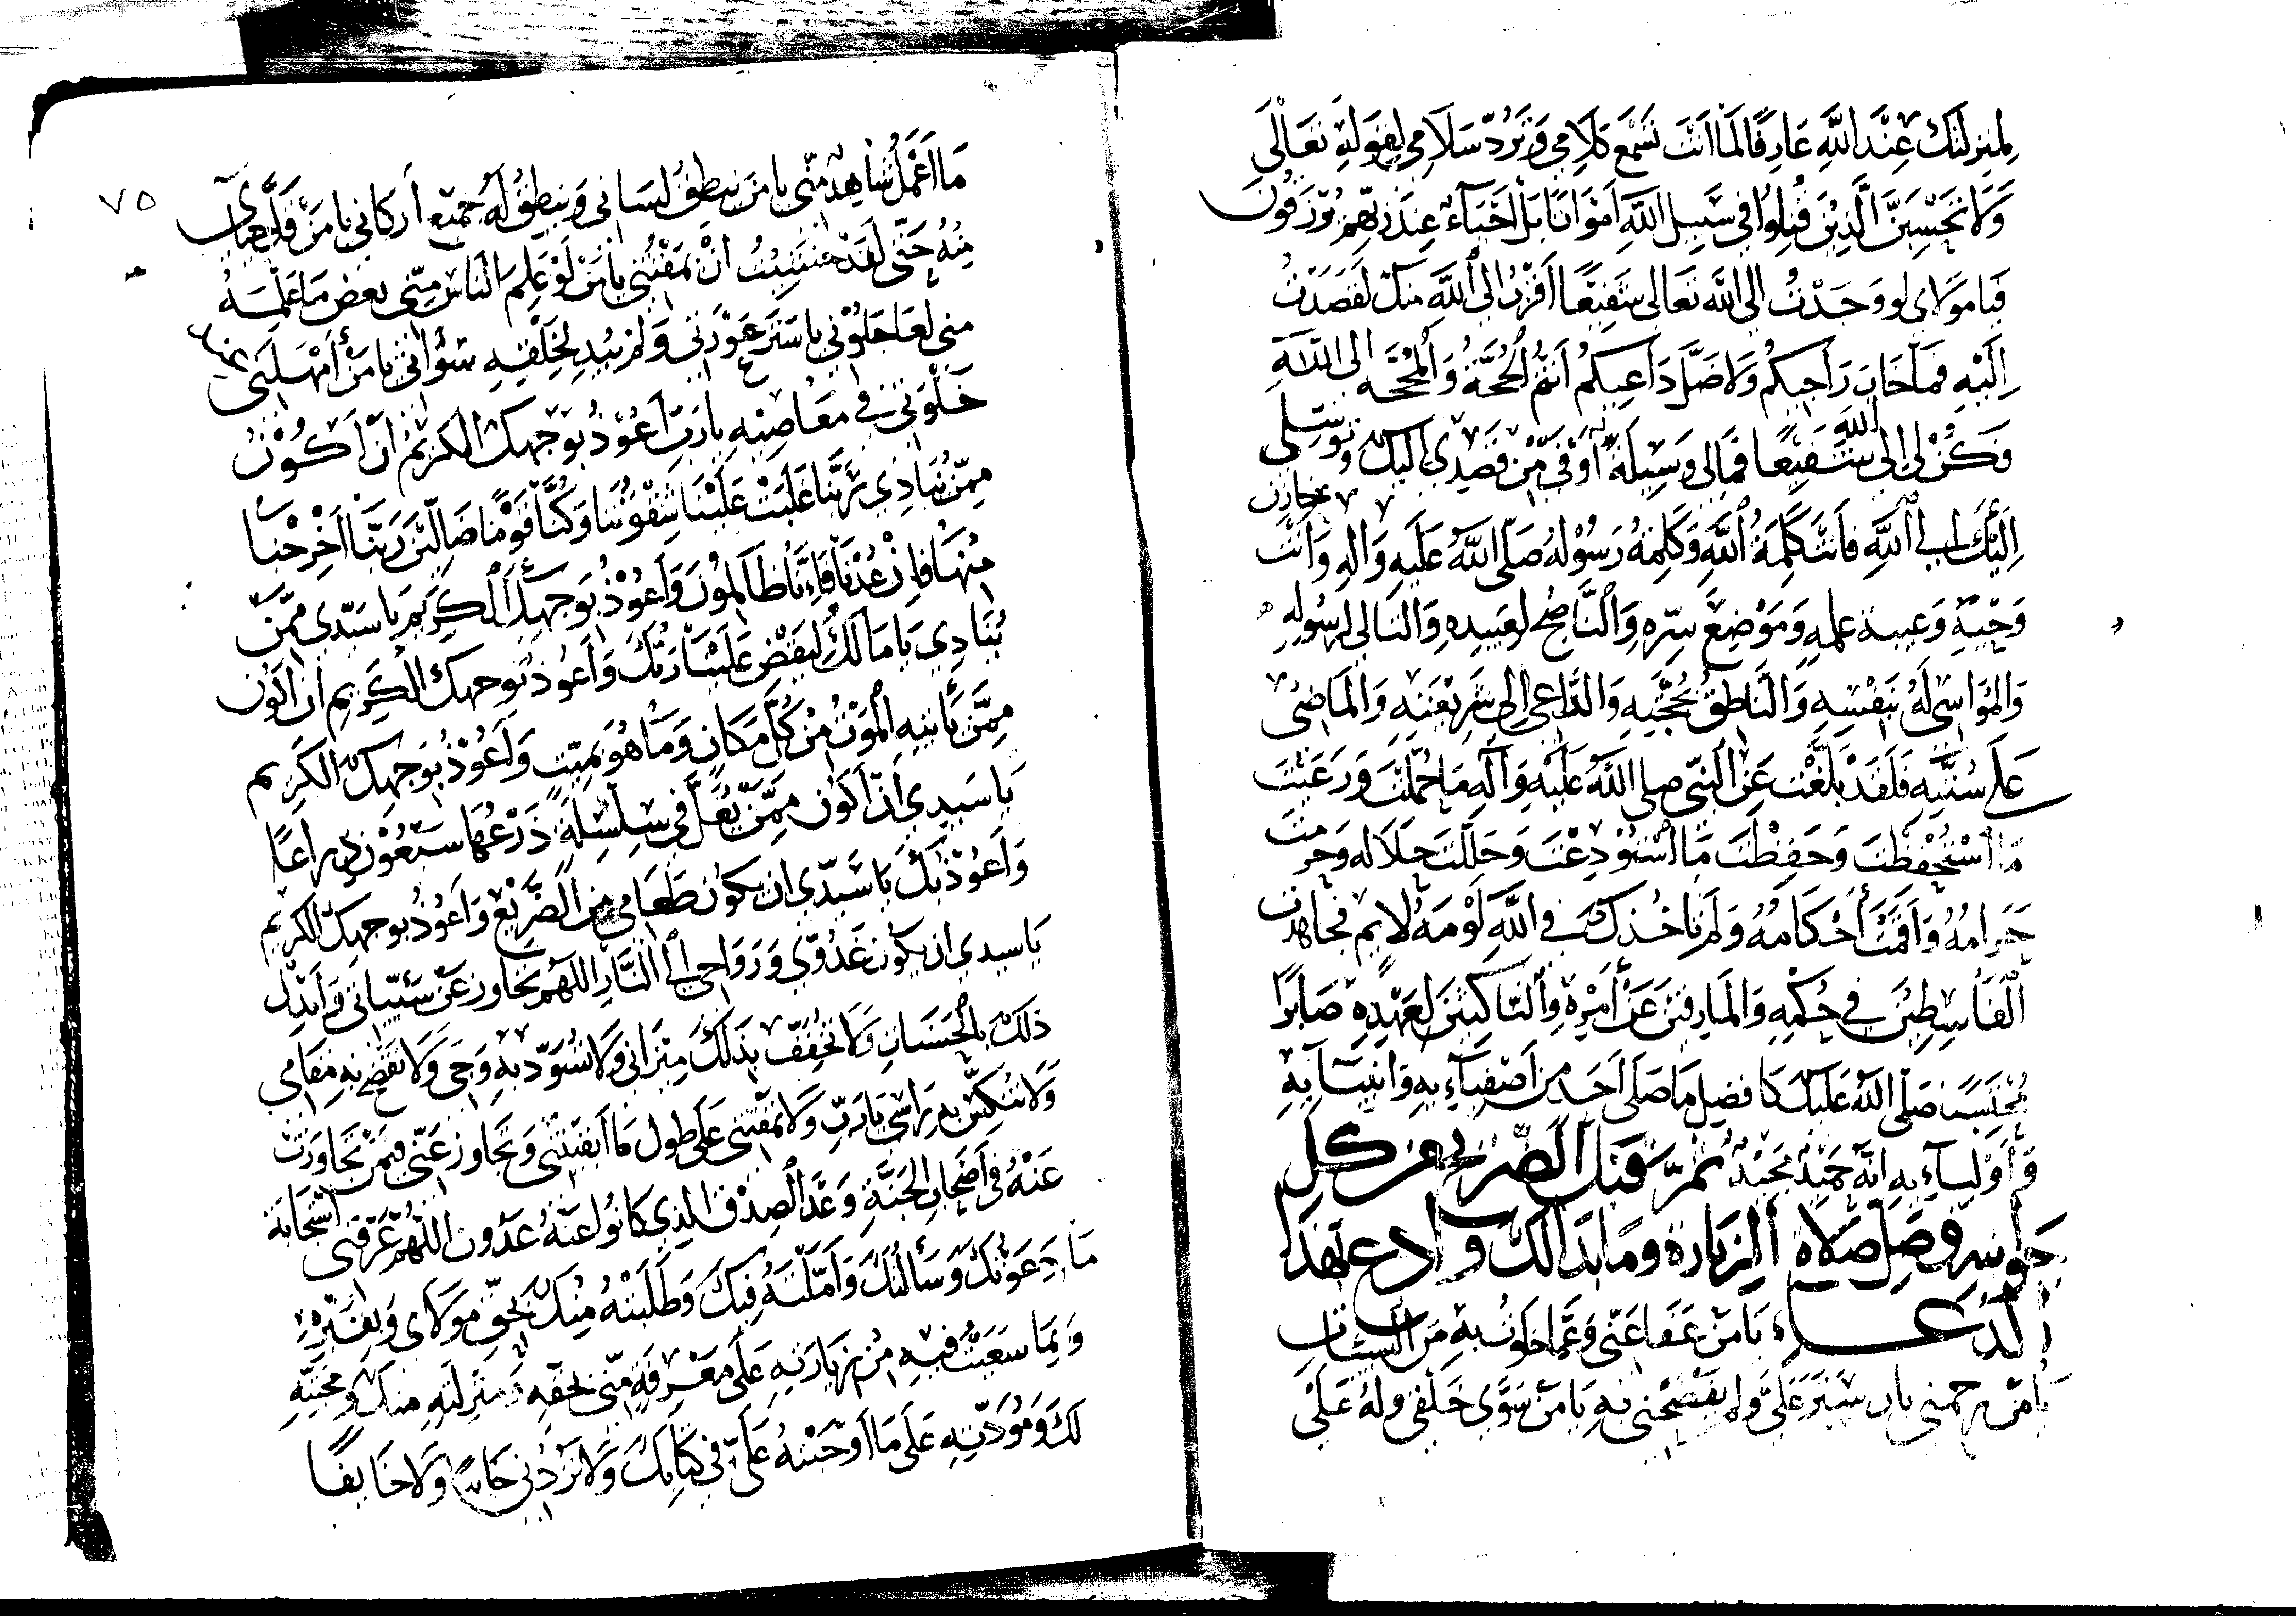 لِمَنزِلَتِكَ عِنْدَ اللَّهِ عَارِفًا لَمَّا أَنْتَ تَسْمَعُ كَلَامِي وَتَرُدُّ سَلَامِي لِقَوْلِهِ تَعَالَى
وَلَا تَحْسَبَنَّ الَّذِينَ قُتِلُوا فِي سَبِيلِ اللَّهِ أَمْوَاتًا بَلْ أَحْيَاءٌ عِنْدَ رَبِّهِمْ يُرْزَقُونَ
فَيَا مَوْلَاي لو وَجَدْتُ إلى الله تَعَالى شَفِيعًا أَقْرَبُ إلى اللَّهِ مِنكَ لَقَصَدْتُ
إِلَيْهِ فَمَا خَابَ رَاجِيكُمْ وَلَا ضَلَّ دَاعِيكُمْ أَنْتُمُ الْحُجَّةُ وَالْمَحَجَّة إلى اللَّهِ
فَكُنْ لِي إلى اللَّهِ شَفِيعًا فَمَا لِي وَسِيلَةٌ أَوْفَى مِنْ قَصْدِي إِلَيْكَ وَتَوَسُّلِي
إِلَيْكَ إلى اللَّهِ فَأَنْتَ كَلِمَةُ اللَّهِ وَكَلِمَةُ رَسُولُهُ صَلَّى اللَّهُ عَلَيْهِ وَآلِهِ وَأَنْتَ خازن
وَحْيِهِ وَعيبة علمه وَمَوْضِعُ سِرِّهِ وَالنَّاصِحُ لِعَبِيدِهِ وَالتَّالي لِرَسُولِهِ
وَالْمُوَاسي لَهُ بِنَفْسِهِ وَالنَّاطِقُ بِحُجَّتِهِ وَالدَّاعِي إِلى شَرِيْعَتِهِ وَالْمَاضِي
عَلَى سُنَّتِهِ فَلَقَدْ بَلَّغْتَ عَنِ النَّبِيِّ صلى اللَّهُ عَلَيْهِ وَآلِهِ مَا حُمِّلْتَ وَرَعَيْتَ
مَا اسْتُحْفِظْتَ وَحَفِظْتَ مَا اسْتُوْدِعْتَ وَحَلَّلْتَ حَلَالَه وَحَرَّمْتَ
حَرَامَهُ وَأَقَمْتَ أَحْكَامَهُ وَلَم تَأخُذكَ فِي اللَّهِ لَوْمَةُ لَايِم فجَاهَدْتَ
الْقَاسِطِينَ فِي حُكْمِهِ وَالْمَارِقِينَ عَنْ أَمْرِهِ وَالنَّاكِثِينَ لِعَهْدِهِ صَابِرًا
مُحْتَسِبًا صَلَّى اللَّهُ عَلَيْكَ كَأفضل مَا صَلَّى أَحَد مِنْ أَصْفِيَآءِهِ وَانْبِيَآئِهِ
وَأَوْلِيَآءِهِ إِنَّهُ حَمِيْدٌ مَجِيْدٌ ثُمَّ قَبِّل الضّرِيح مِن كلِّ
جَوَانِبه وصَلِّ صَلاه الزِيَارَة وَمَا بَدَا لَكَ وادع بهذا
الدعاء يَا مَنْ عَفَا عَنِّي وَعَمَّا خَلَوْتُ بِهِ مِنَ السَّيِّئَاتِ
يَا مَنْ رحمني بان سَتَرَ عَلَيَّ وَلم يَفْضَحْنِي بِهِ يَا مَنْ سَوَّى خَلْقِي وَلَهُ عَلَى
٧٥
مَا أَعْمَلُ شَاهِدٌ مِنِّي يا مَن يُنطِقُ لِسَانِي وَيَنْطِقُ لَهُ جَمِيْع أَركَانِي يا مَنْ قَلَّ حَيَائي
مِنْهُ حَتَّى لَقَدْ خَشِيْتُ أَنْ يَمْقُتُنِي يَا مَنْ لَوْ عَلِمَ النَّاسُ مِنِّي بعض مَا عَلِمَهُ
مني لعَاجَلُوْنِي يا مَن سَتَرَ عَوْرَتِي وَلَمْ يُبْدِ لِخَلْقِهِ سَوْأَتِي يَا مَنْ أَمْهَلَنِي عند
خَلْوَتِي فِي مَعَاصِيْهِ يَا رَبِّ أَعُوْذُ بِوَجْهِكَ الكَرِيْمِ أَنْ أَكُوْنَ
مِمَّنْ يُنَادِي رَبَّنَا غَلَبَتْ عَلَيْنَا شِقْوَتُنَا وَكُنَّا قَوْمًا ضَالِّيْنَ رَبَّنَا أَخْرِجْنَا
مِنْهَا فَإِنْ عُدْنَا فَإِنَّا ظَالِمُوْنَ وَأَعُوْذُ بِوَجْهِكَ الْكَرِيْمِ يَا سَيِّدِي مِمَّنْ
يُنَادِي يَا مَالِكُ لِيَقْضِ عَلَيْنَا رَبُّكَ وَأَعُوذُ بِوجهِكَ الْكَرِيْمِ ان اكون
مِمَّنْ يَأْتِيْهِ الْمَوْتُ مِنْ كُلِّ مَكَانٍ وَمَا هُوَ بِمَيِّتٍ وَأَعُوْذُ بِوَجْهِكَ الْكَرِيم
يَا سَيِّدِي أَنْ أَكُون مِمَّنْ يُغَلُّ فِي سِلْسِلَةٍ ذَرْعُهَا سَبْعُوْنَ ذِرَاعًا
وَأَعُوْذُ بِكَ يَا سَيِّدِي أن يكون طَعَامِي مِنَ الضَّرِيْعِ وَأَعُوذُ بوجهِكَ الكَرِيْمِ
يَا سيدي ان يكون غُدُوِّي وَرَوَاحي إلى النَّارِ اللَّهُمَّ تَجَاوز عَنْ سَيِّئَاتِي وَأَبْدِلْ
ذَلِكَ بِالْحَسَنَاتِ وَلَا تُخَفِّفْ بِذَلِكَ مِيْزَانِي وَلَا تُسَوِّدْ بِهِ وَجهي وَلَا تَفْضَح بِهِ مَقَامِي
وَلَا تُنَكِّسْ بِهِ رَاسي يَا رَبِّ وَلَا تَمْقُتْنِي عَلَى طُول مَا أَبْقَيْتَنِي وَتَجَاوز عَنِّي فِيْمَنْ تَجَاوَزْتَ
عَنْهُ فِي أَصْحَابِ الْجَنَّةِ وَعْدَ الصِّدْقِ الذي كَانُوا عَنْهُ عَدُونَ اللَّهُمَّ عَرِّفْنِي اسْتِجَابَة
مَا دَعَوْتُكَ وَسَأَلْتُكَ وَأَمَّلْتُهُ فِيْكَ وَطَلَبْتُهُ مِنْكَ بِحَقِّ مَوْلَاي وَبِقَبْرِهِ
وَبِمَا سَعَيْتُ فِيْهِ مِنْ زِيَارَتِهِ عَلَى مَعْرِفَةٍ مِنِّي بحَقِّهِ وَمَنْزِلَتِهِ مِنْكَ وَمَحَبَّتِهِ
لَكَ وَمَوَدَّتِهِ عَلَى مَا أَوْجَبْتَهُ عَلَيَّ فِي كِتَابِكَ وَلَا تَرُدَّنِي خَائبا وَلَا خَائِفًا